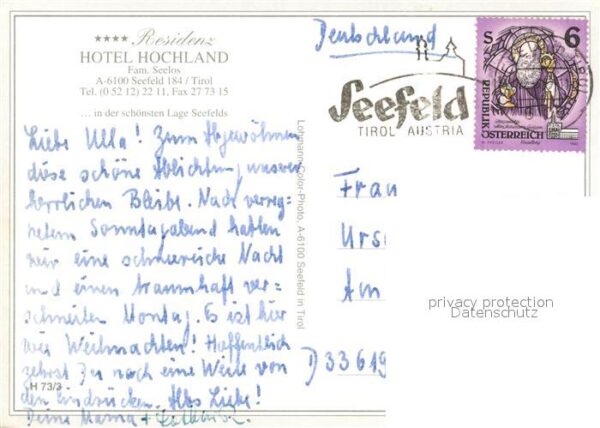 **** Residenz
HOTEL HOCHLAND
Fam. Seelos
A-6100 Seefeld 184 / Tirol
Tel. (0 52 12) 22 11, Fax 27 73 15
... in der schönsten Lage Seefelds
Liebe Ulla! Zum Abgewöhnen
diese schöne Ablichtung unserer
herrlichen Bleibe. Nach verreg-
netem Sonntagabend hatten
wir eine schneereiche Nacht
und einen traumhaft ver-
schneiten Montag. Es ist hier
wie Weihnachten! Hoffentlich
zehrst Du noch eine Weile von
den Eindrücken. Alles Liebe!
Deine Mama +
H 73/3
Lohmann-Color-Photo, A-6100 Seefeld in Tirol
Deutschland
Seefeld
TIROL AUSTRIA
S 6
REPUBLIK
ÖSTERREICH
Frau
Urs
Am
D 33619
privacy protection
Datenschutz